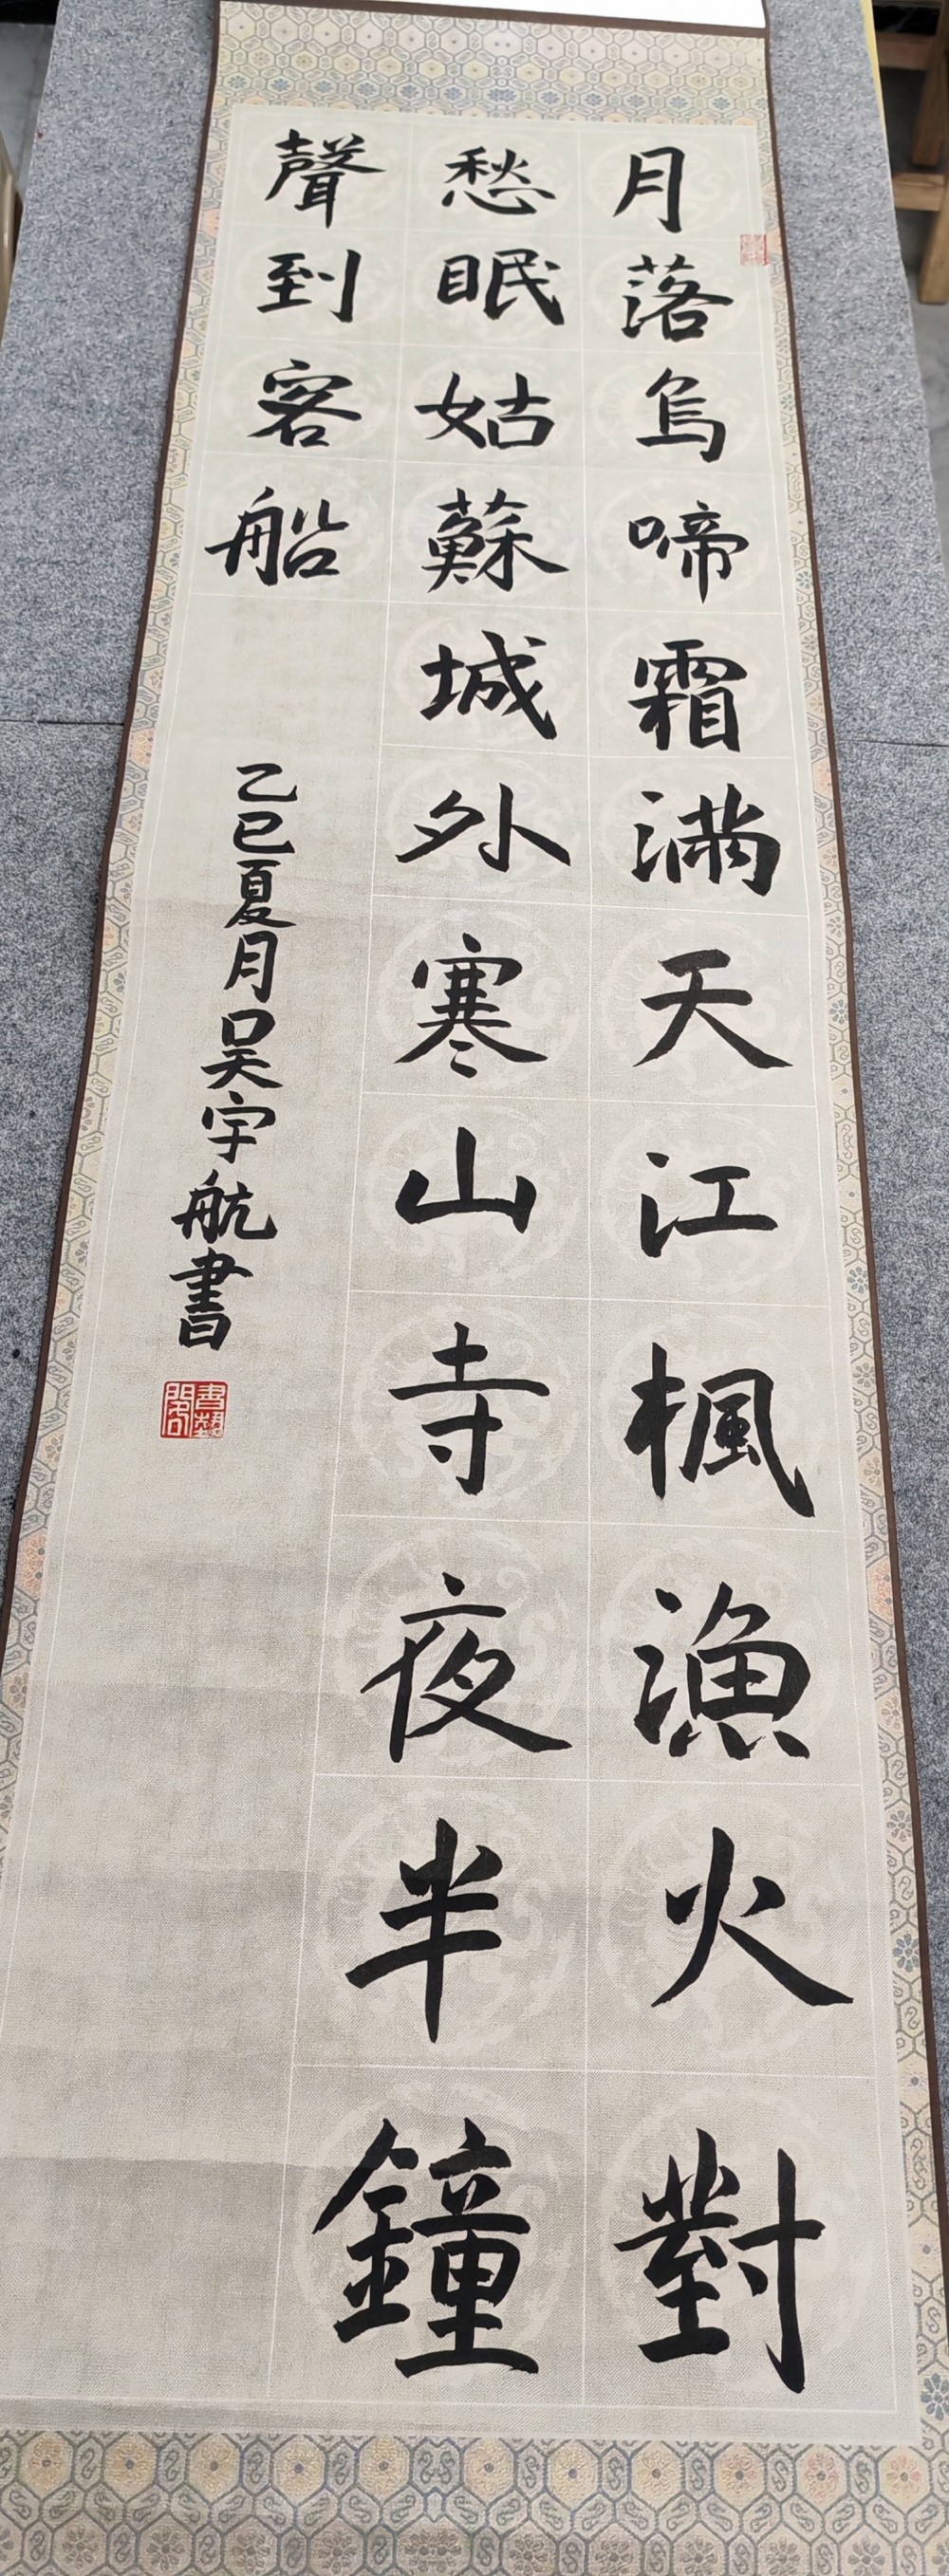 月落烏啼霜滿天江楓漁火對
愁眠姑蘇城外寒山寺夜半鐘
聲到客船
乙巳夏月吴宇航書